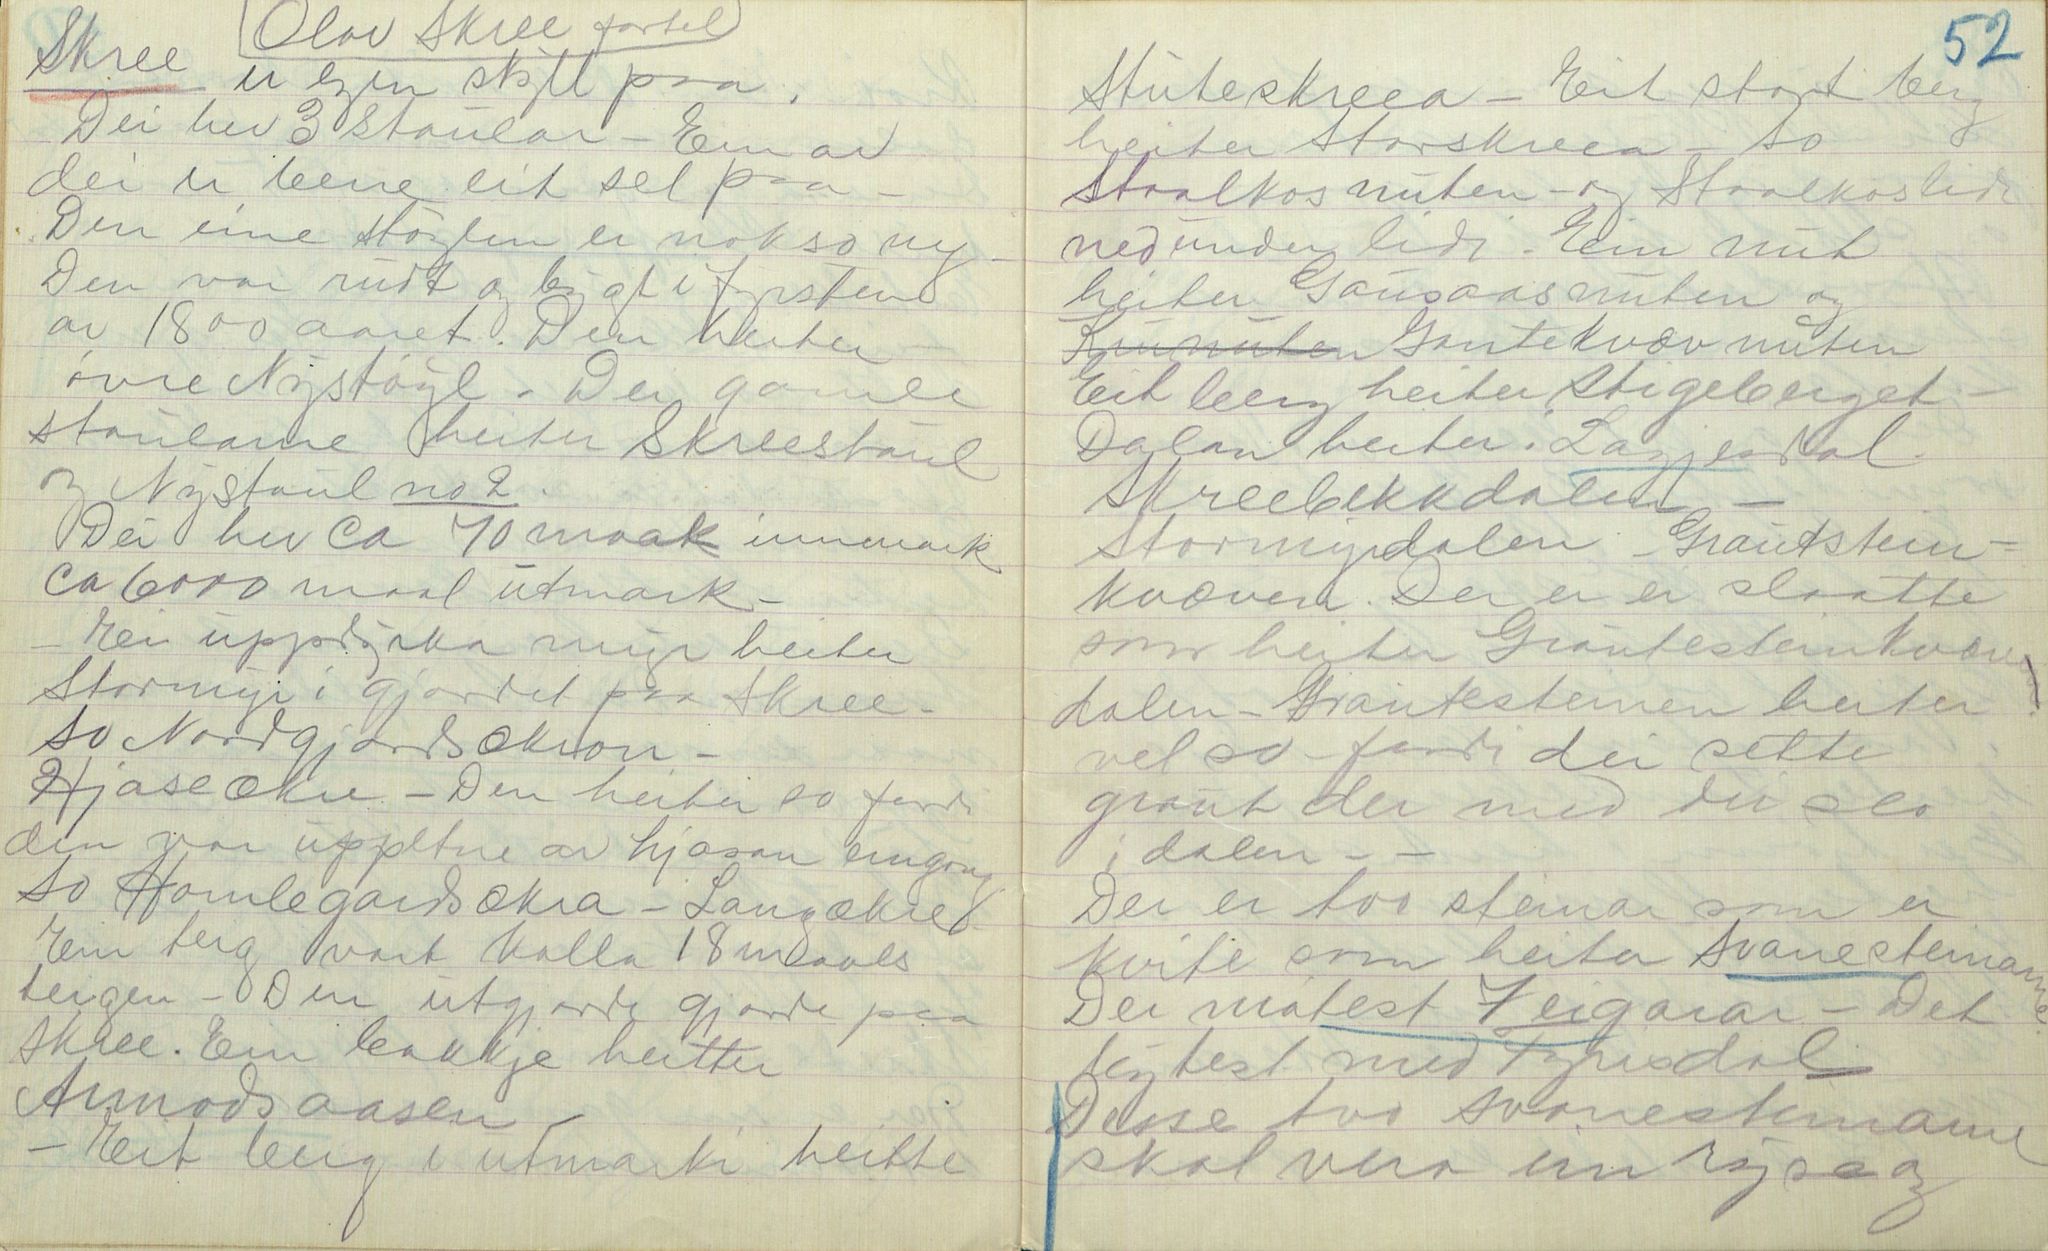 Olav Skree fortel
Skree er ein støl paa.
Dei hev 3 staular - Ein av
dei er berre eit sel paa -
Den eine støylen er nokso ny -
Den var rudt og bygt i fyrsten
av 1800 aaret. Den heiter
øvre Nystøyl - Dei gamle
staularne heiter Skreestaul
og Nystaul no 2.
Dei hev ca 70 maal innmark
ca 6000 maal utmark -
- Ei uppdyrka myr heiter
Stormyr i gjordet paa Skree -
so Nordgjordsækron -
Hjaseækre - Den heiter so fordi
den var uppetne av hjasan eingong
so Homlegardsækra - Langækre
Ein teig vart kalla 18 maals
teigen - Den utgjorde gjorde paa
Skree. Ein bakkje heitter
Armodsaasen -
- Eit berg i utmarki heitte
52
Stuteskreea - Eit stort berg
heiter Storskreea - So
Staalkosnuten - og Staalkoslidi
nedunder lidi. Ein nut
heiter Gausaasnuten og
Gautekvævnuten
Eit berg heiter Stigeberget -
Dalan heiter. Lagjedal.
Skreebekkdalen -
Stormyrdalen - Grautstein-
kvæven. Der er ei slaatte
som heiter Grautesteinkvæv
dalen - Grautesteinen heiter
vel so fordi dei sette
graut der med dei slo
i dalen - -
Der er tvo steinar som er
kvite som heiter Svanesteinarne
Der møtest 7 eigarar - Det
bytest med Fyresdal
Desse tvo Svanesteinarne
skal vera ein ryse og